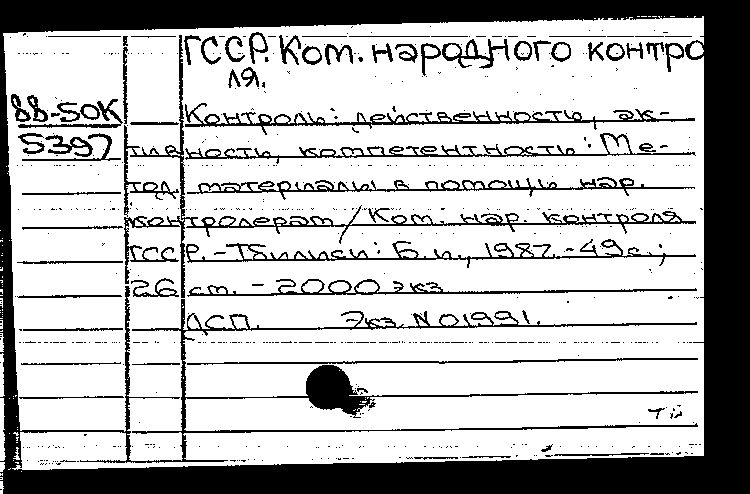 ГССР. Ком. народного контро
ля.
88-50К Контроль: действенность, ак-
5397 тивность, компетентность: Ме-
тод. материалы в помощь нар.
контролерам / Ком. нар. контроля
ГССР. - Тбилиси: Б.и., 1987. - 49с.;
26 см. - 2000 экз
ДСП. Экз. N 01991.